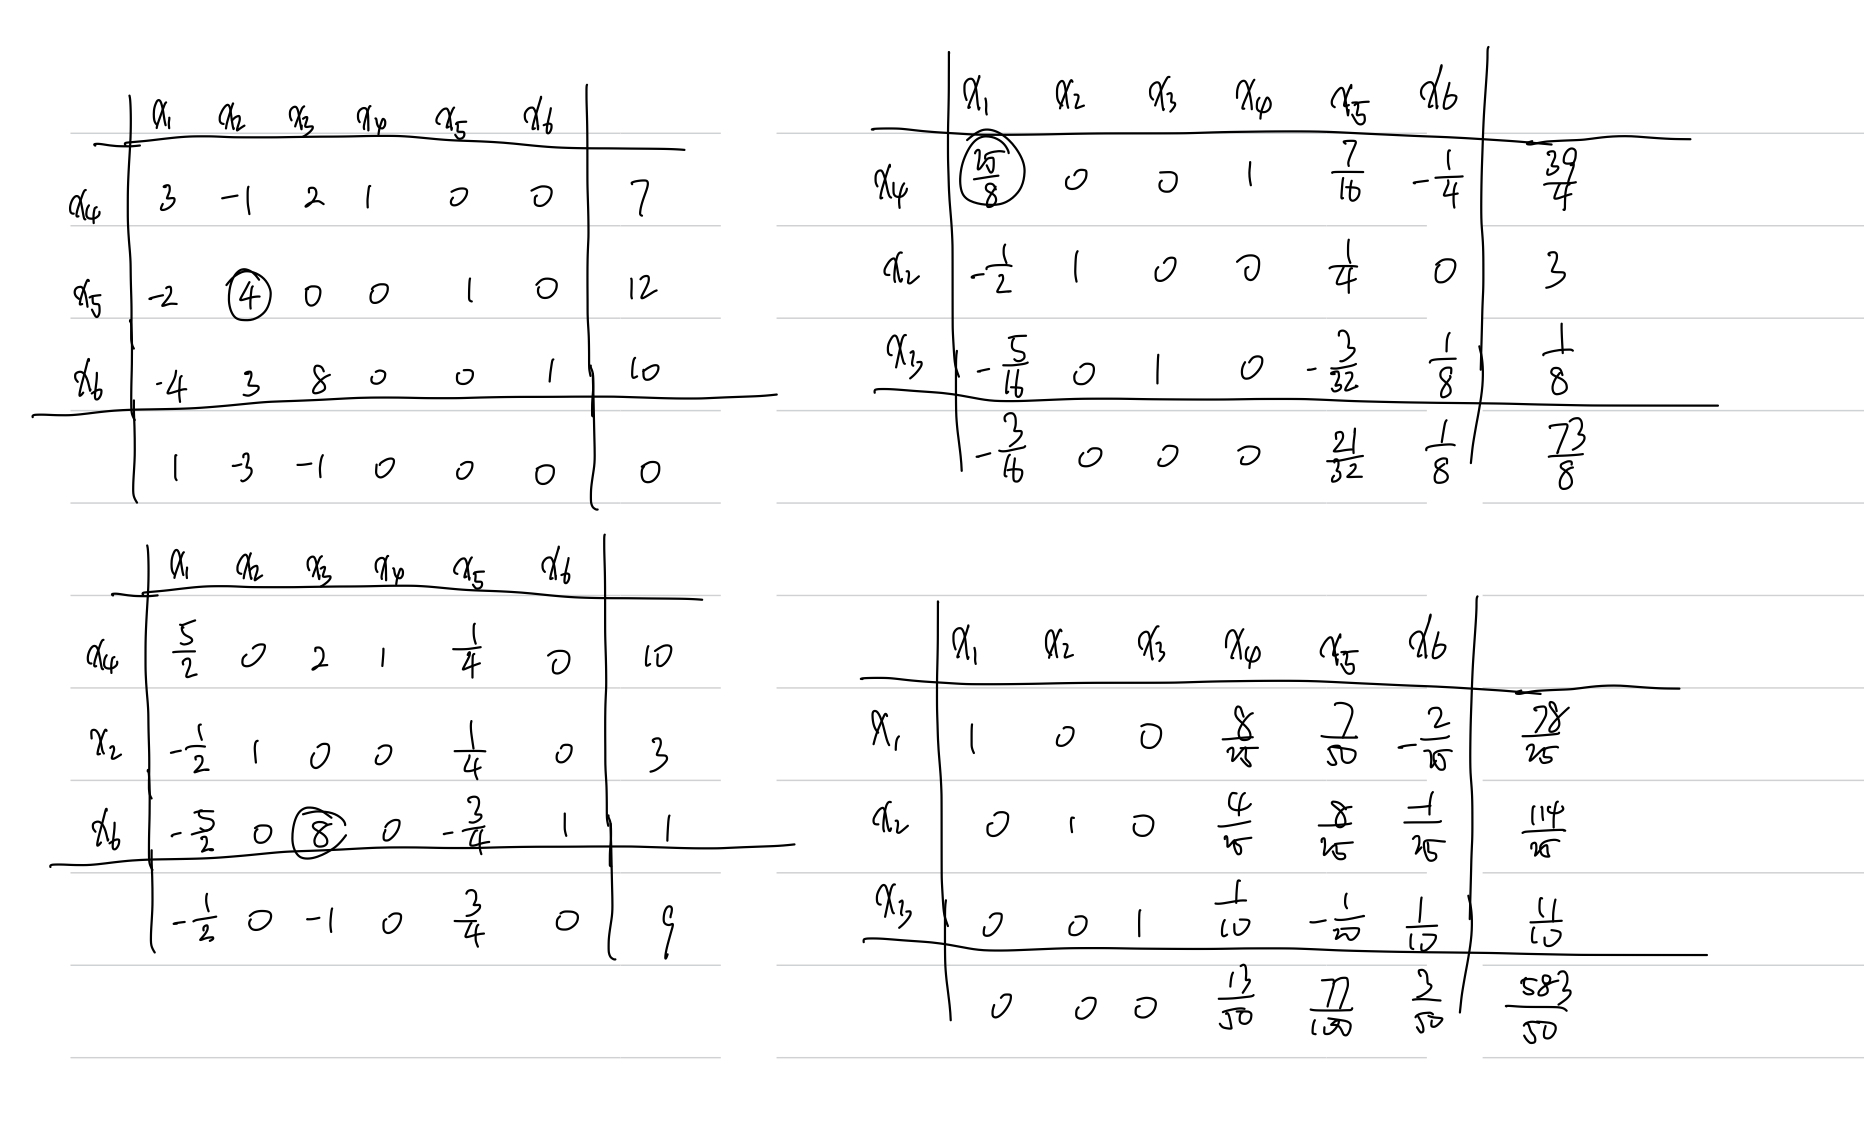 x₁ x₂ x₃ x₄ x₅ x₆
x₄ 3 -1 2 1 0 0 7
x₅ -2 4 0 0 1 0 12
x₆ -4 3 8 0 0 1 10
1 -3 -1 0 0 0 0
x₁ x₂ x₃ x₄ x₅ x₆
x₄ 5/2 0 2 1 1/4 0 10
x₂ -1/2 1 0 0 1/4 0 3
x₆ -5/2 0 8 0 -3/4 1 1
-1/2 0 -1 0 3/4 0 9
x₁ x₂ x₃ x₄ x₅ x₆
x₄ 25/8 0 0 1 7/16 -1/4 39/4
x₂ -1/2 1 0 0 1/4 0 3
x₃ -5/16 0 1 0 -3/32 1/8 1/8
-3/16 0 0 0 21/32 1/8 73/8
x₁ x₂ x₃ x₄ x₅ x₆
x₁ 1 0 0 8/25 7/50 -2/25 78/25
x₂ 0 1 0 4/25 8/25 -1/25 114/25
x₃ 0 0 1 1/10 -1/20 1/10 11/10
0 0 0 13/50 77/100 3/50 583/50